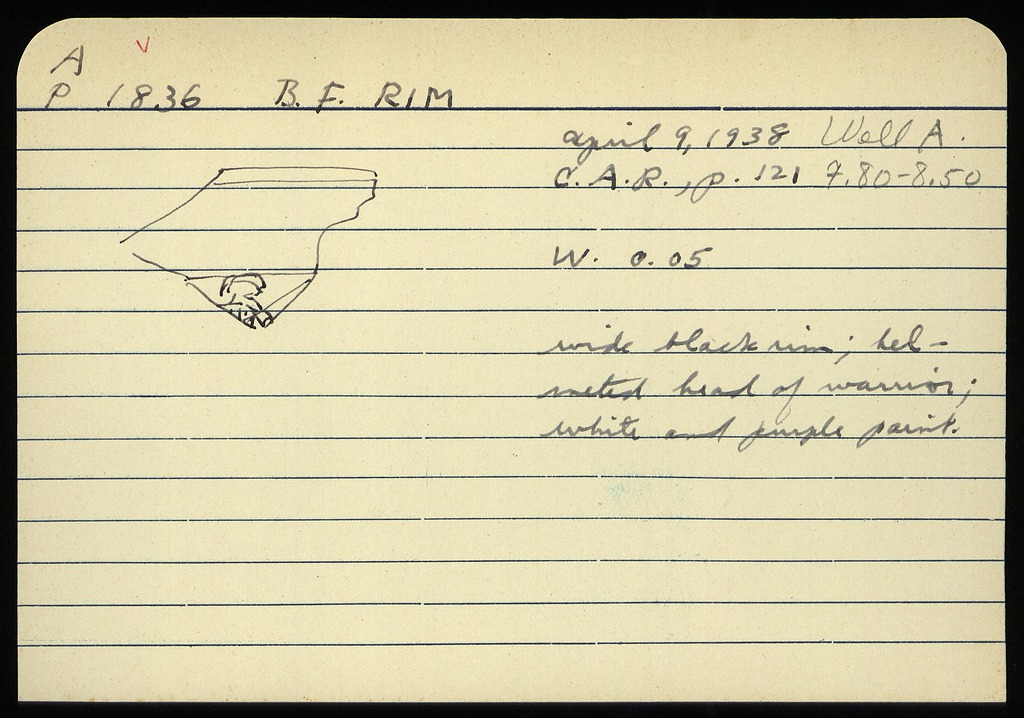 A
P 1836 B. F. RIM
april 9, 1938 Well A.
C. A. R., p. 121 7.80-8.50
W. 0.05
wide black rim; hel-
meted head of warrior;
white and purple paint.